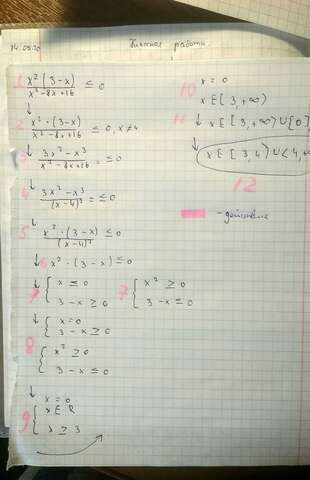 14.05.20
Класная работа.
1 x² (3-x) / x²-8x+16 ≤ 0
↓
2 x² · (3-x) / x²-8x+16 ≤ 0, x≠4
↓
3 3x² - x³ / x²-8x+16 = ≤ 0
↓
4 3x² - x³ / (x-4)² = ≤ 0
↓
5 x² · (3-x) / (x-4)² ≤ 0
↓ 6 x² · (3-x) ≤ 0
↓ 7 { x ≤ 0
3-x ≥ 0
7 { x² ≥ 0
3-x ≤ 0
↓ { x=0
3-x ≥ 0
8 { x² ≥ 0
3-x ≤ 0
↓ x=0
9 { x ∈ R
3 ≥ 3
10 x = 0
x ∈ [3, +∞)
11 ↓ x ∈ [3, +∞) ∪ {0}
↓ x ∈ [3, 4) ∪ < 4, +∞
12
- действие